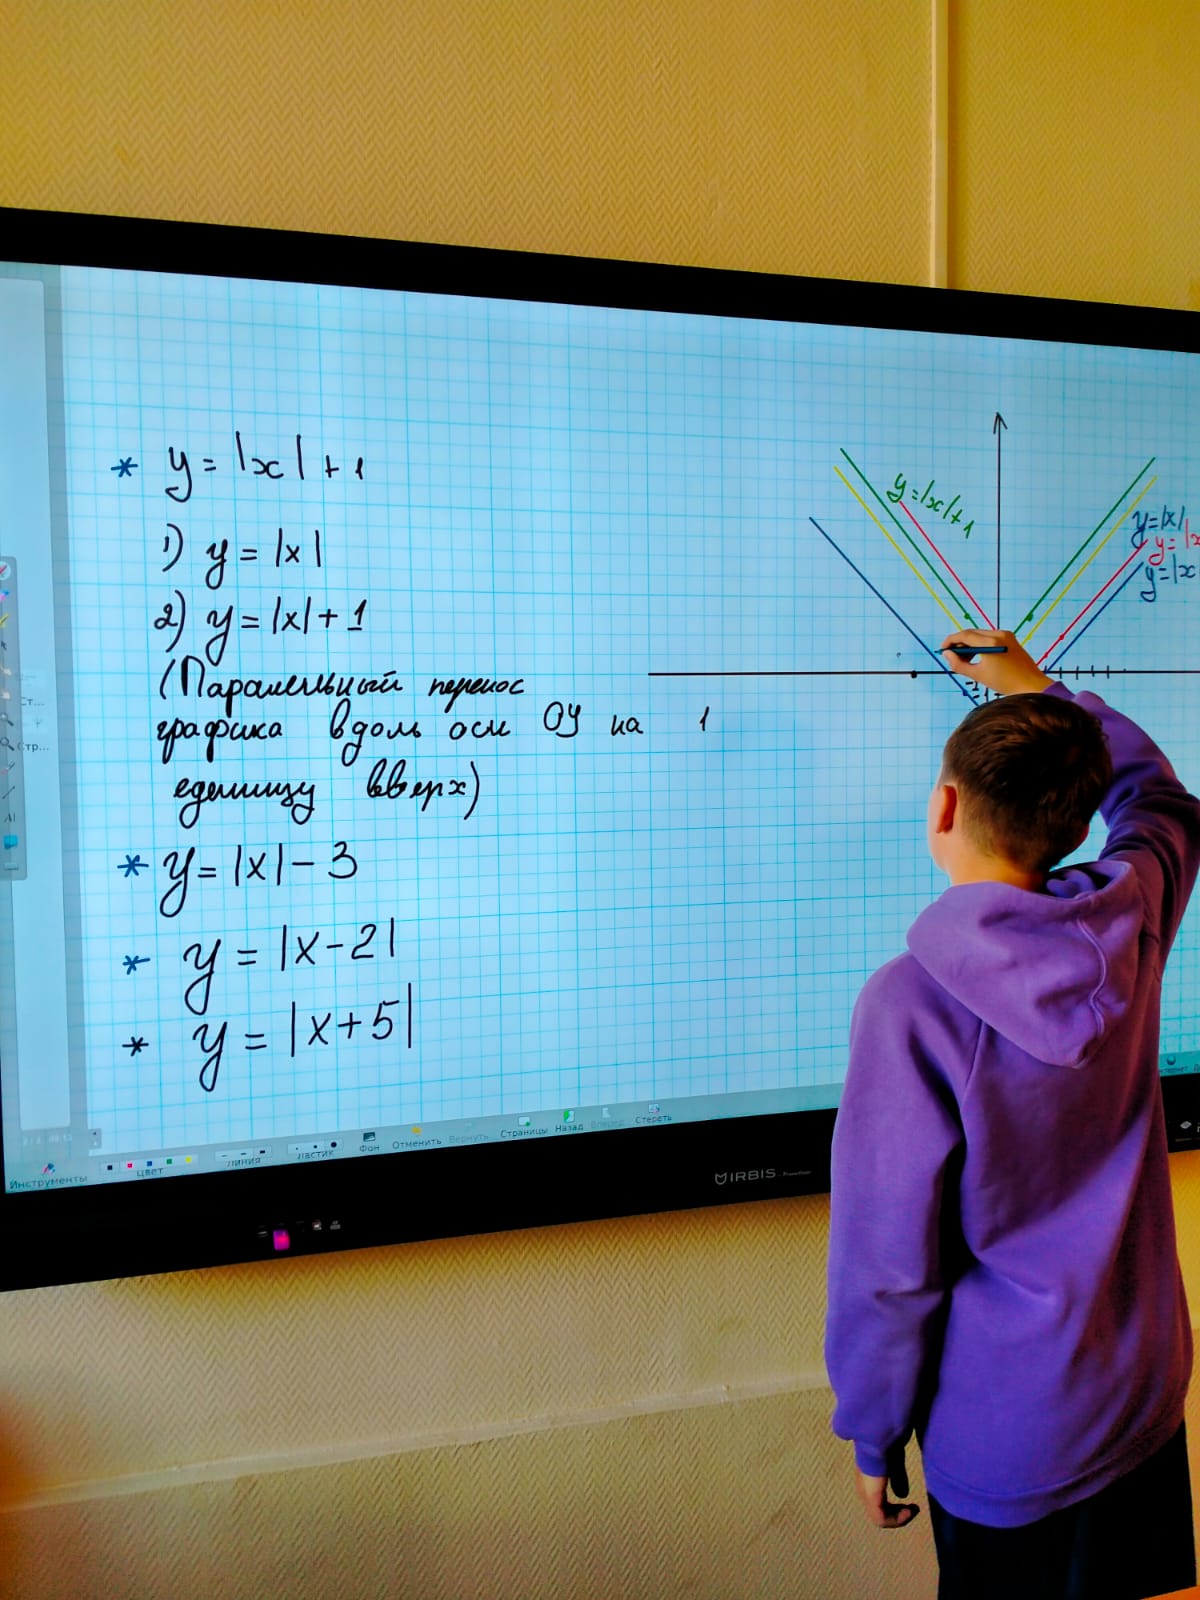 * y = |x| + 1
1) y = |x|
2) y = |x| + 1
(Параллельный перенос
графика вдоль оси OY на 1
единицу вверх)
* y = |x| - 3
* y = |x-2|
* y = |x+5|
y=|x|+1
y=|x|
y=|x
y=|x
-2
Ст...
Стр...
Инструменты
Цвет
Линия
Ластик
Фон
Отменить
Вернуть
Страницы
Назад
Вперед
Стереть
IRBIS